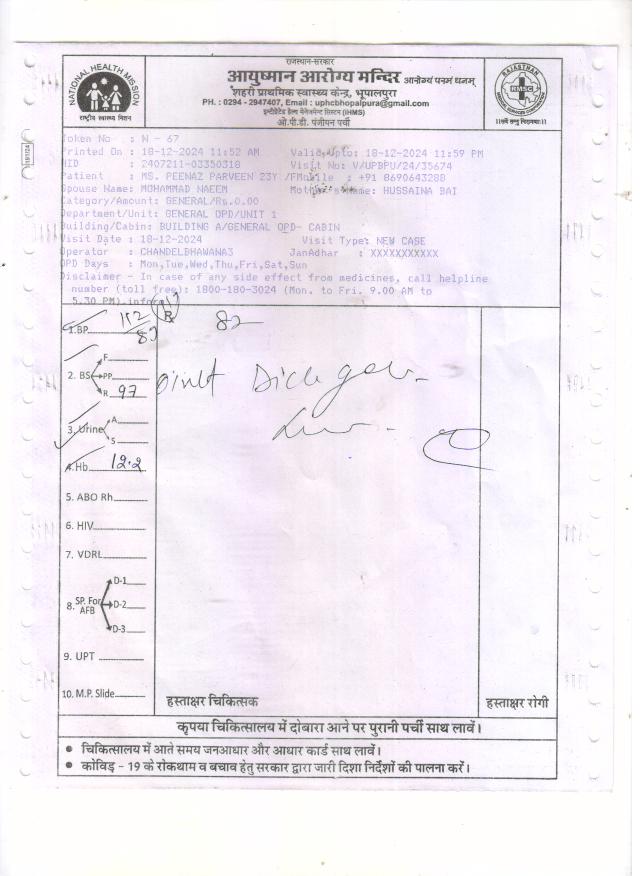 राजस्थान-सरकार
आयुष्मान आरोग्य मन्दिर आरोग्यं परमं धनम्
शहरी प्राथमिक स्वास्थ्य केन्द्र, भूपालपुरा
PH. : 0294 - 2947407, Email : uphcbhopalpura@gmail.com
इन्टीग्रेटेड हेल्थ मेनेजमेन्ट सिस्टम (IHMS)
ओ.पी.डी. पंजीयन पर्ची
NATIONAL HEALTH MISSION
राष्ट्रीय स्वास्थ्य मिशन
RAJASTHAN
RMSC
Token No : N - 67
Printed On : 18-12-2024 11:52 AM Valid Upto: 18-12-2024 11:59 PM
HID : 2407211-03350318 Visit No: V/UPBPU/24/35674
Patient : MS. PEENAZ PARVEEN 23Y /F Mobile : +91 8690643288
Spouse Name: MOHAMMAD NAEEM Mother's Name: HUSSAINA BAI
Category/Amount: GENERAL/Rs.0.00
Department/Unit: GENERAL OPD/UNIT 1
Building/Cabin: BUILDING A/GENERAL OPD- CABIN
Visit Date : 18-12-2024 Visit Type: NEW CASE
Operator : CHANDELBHAWANA3 JanAdhar : XXXXXXXXXX
OPD Days : Mon,Tue,Wed,Thu,Fri,Sat,Sun
Disclaimer - In case of any side effect from medicines, call helpline
number (toll free): 1800-180-3024 (Mon. to Fri. 9.00 AM to
5.30 PM)
1. BP 82
2. BS F
PP
R 97
3. Urine A
S
4. Hb. 12.2
5. ABO Rh
6. HIV
7. VDRL
8. SP. For AFB D-1
D-2
D-3
9. UPT
10. M.P. Slide
हस्ताक्षर चिकित्सक हस्ताक्षर रोगी
कृपया चिकित्सालय में दोबारा आने पर पुरानी पर्ची साथ लावें।
● चिकित्सालय में आते समय जनआधार और आधार कार्ड साथ लावें।
● कोविड़ - 19 के रोकथाम व बचाव हेतु सरकार द्वारा जारी दिशा निर्देशों की पालना करें।